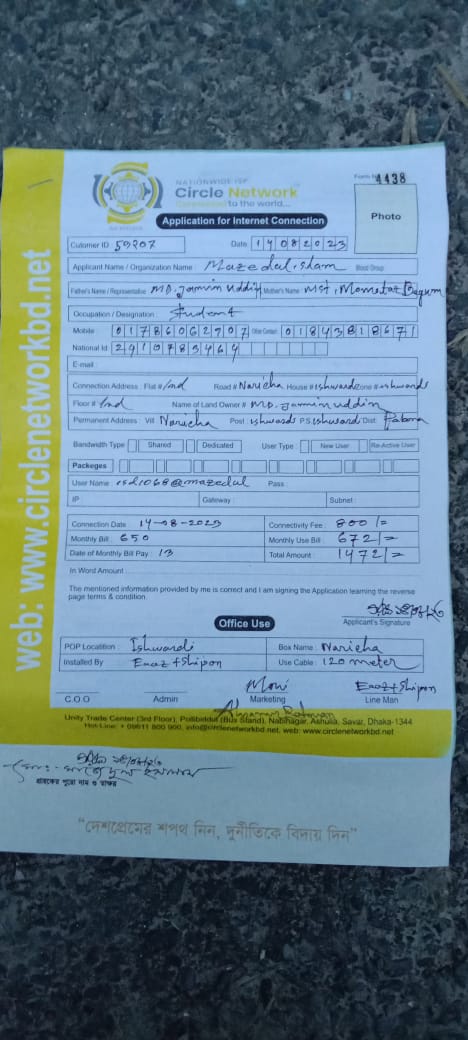 NATIONWIDE ISP
Circle Network
Connected to the world...
Form No 4438
Photo
Application for Internet Connection
Cutomer ID : 59207 Date : 14082023
Applicant Name / Organization Name : Mazedul islam Blood Group :
Father's Name / Representative : MD. Jasmin uddin Mother's Name : Mst. Momotat Begum
Occupation / Designation : Student
Mobile : 01786062707 Other Contact : 01843818671
National Id : 2410783464
E-mail :
Connection Address : Flat # /nd Road # Naricha House # ishwardi Zone # ishwardi
Floor # /nd Name of Land Owner # MD. Jasmin uddin
Permanent Address : Vill Naricha Post : ishwardi P.S ishwardi Dist. Pabna
Bandwidth Type : Shared Dedicated User Type : New User Re-Active User
Packeges
User Name : isd1068@mazedul Pass :
IP : Gateway : Subnet :
Connection Date : 14-08-2023 Connectivity Fee : 800/=
Monthly Bill : 650 Monthly Use Bill : 672/=
Date of Monthly Bill Pay : 13 Total Amount : 1472/=
In Word Amount :
The mentioned information provided by me is correct and I am signing the Application learning the reverse
page terms & condition.
Applicant's Signature
Office Use
POP Locatition : Ishwardi Box Name : Naricha
Installed By : +Shipon Use Cable : 120 meter
Moni +Shipon
C.O.O Admin Marketing Line Man
Unity Trade Center (3rd Floor), Pollibiddut (Bus Stand), Nabinagar, Ashulia, Savar, Dhaka-1344
Hot-Line: + 09611 800 900, info@circlenetworkbd.net, web: www.circlenetworkbd.net
web: www.circlenetworkbd.net
গ্রাহকের পুরো নাম ও স্বাক্ষর
“দেশপ্রেমের শপথ নিন, দুর্নীতিকে বিদায় দিন”